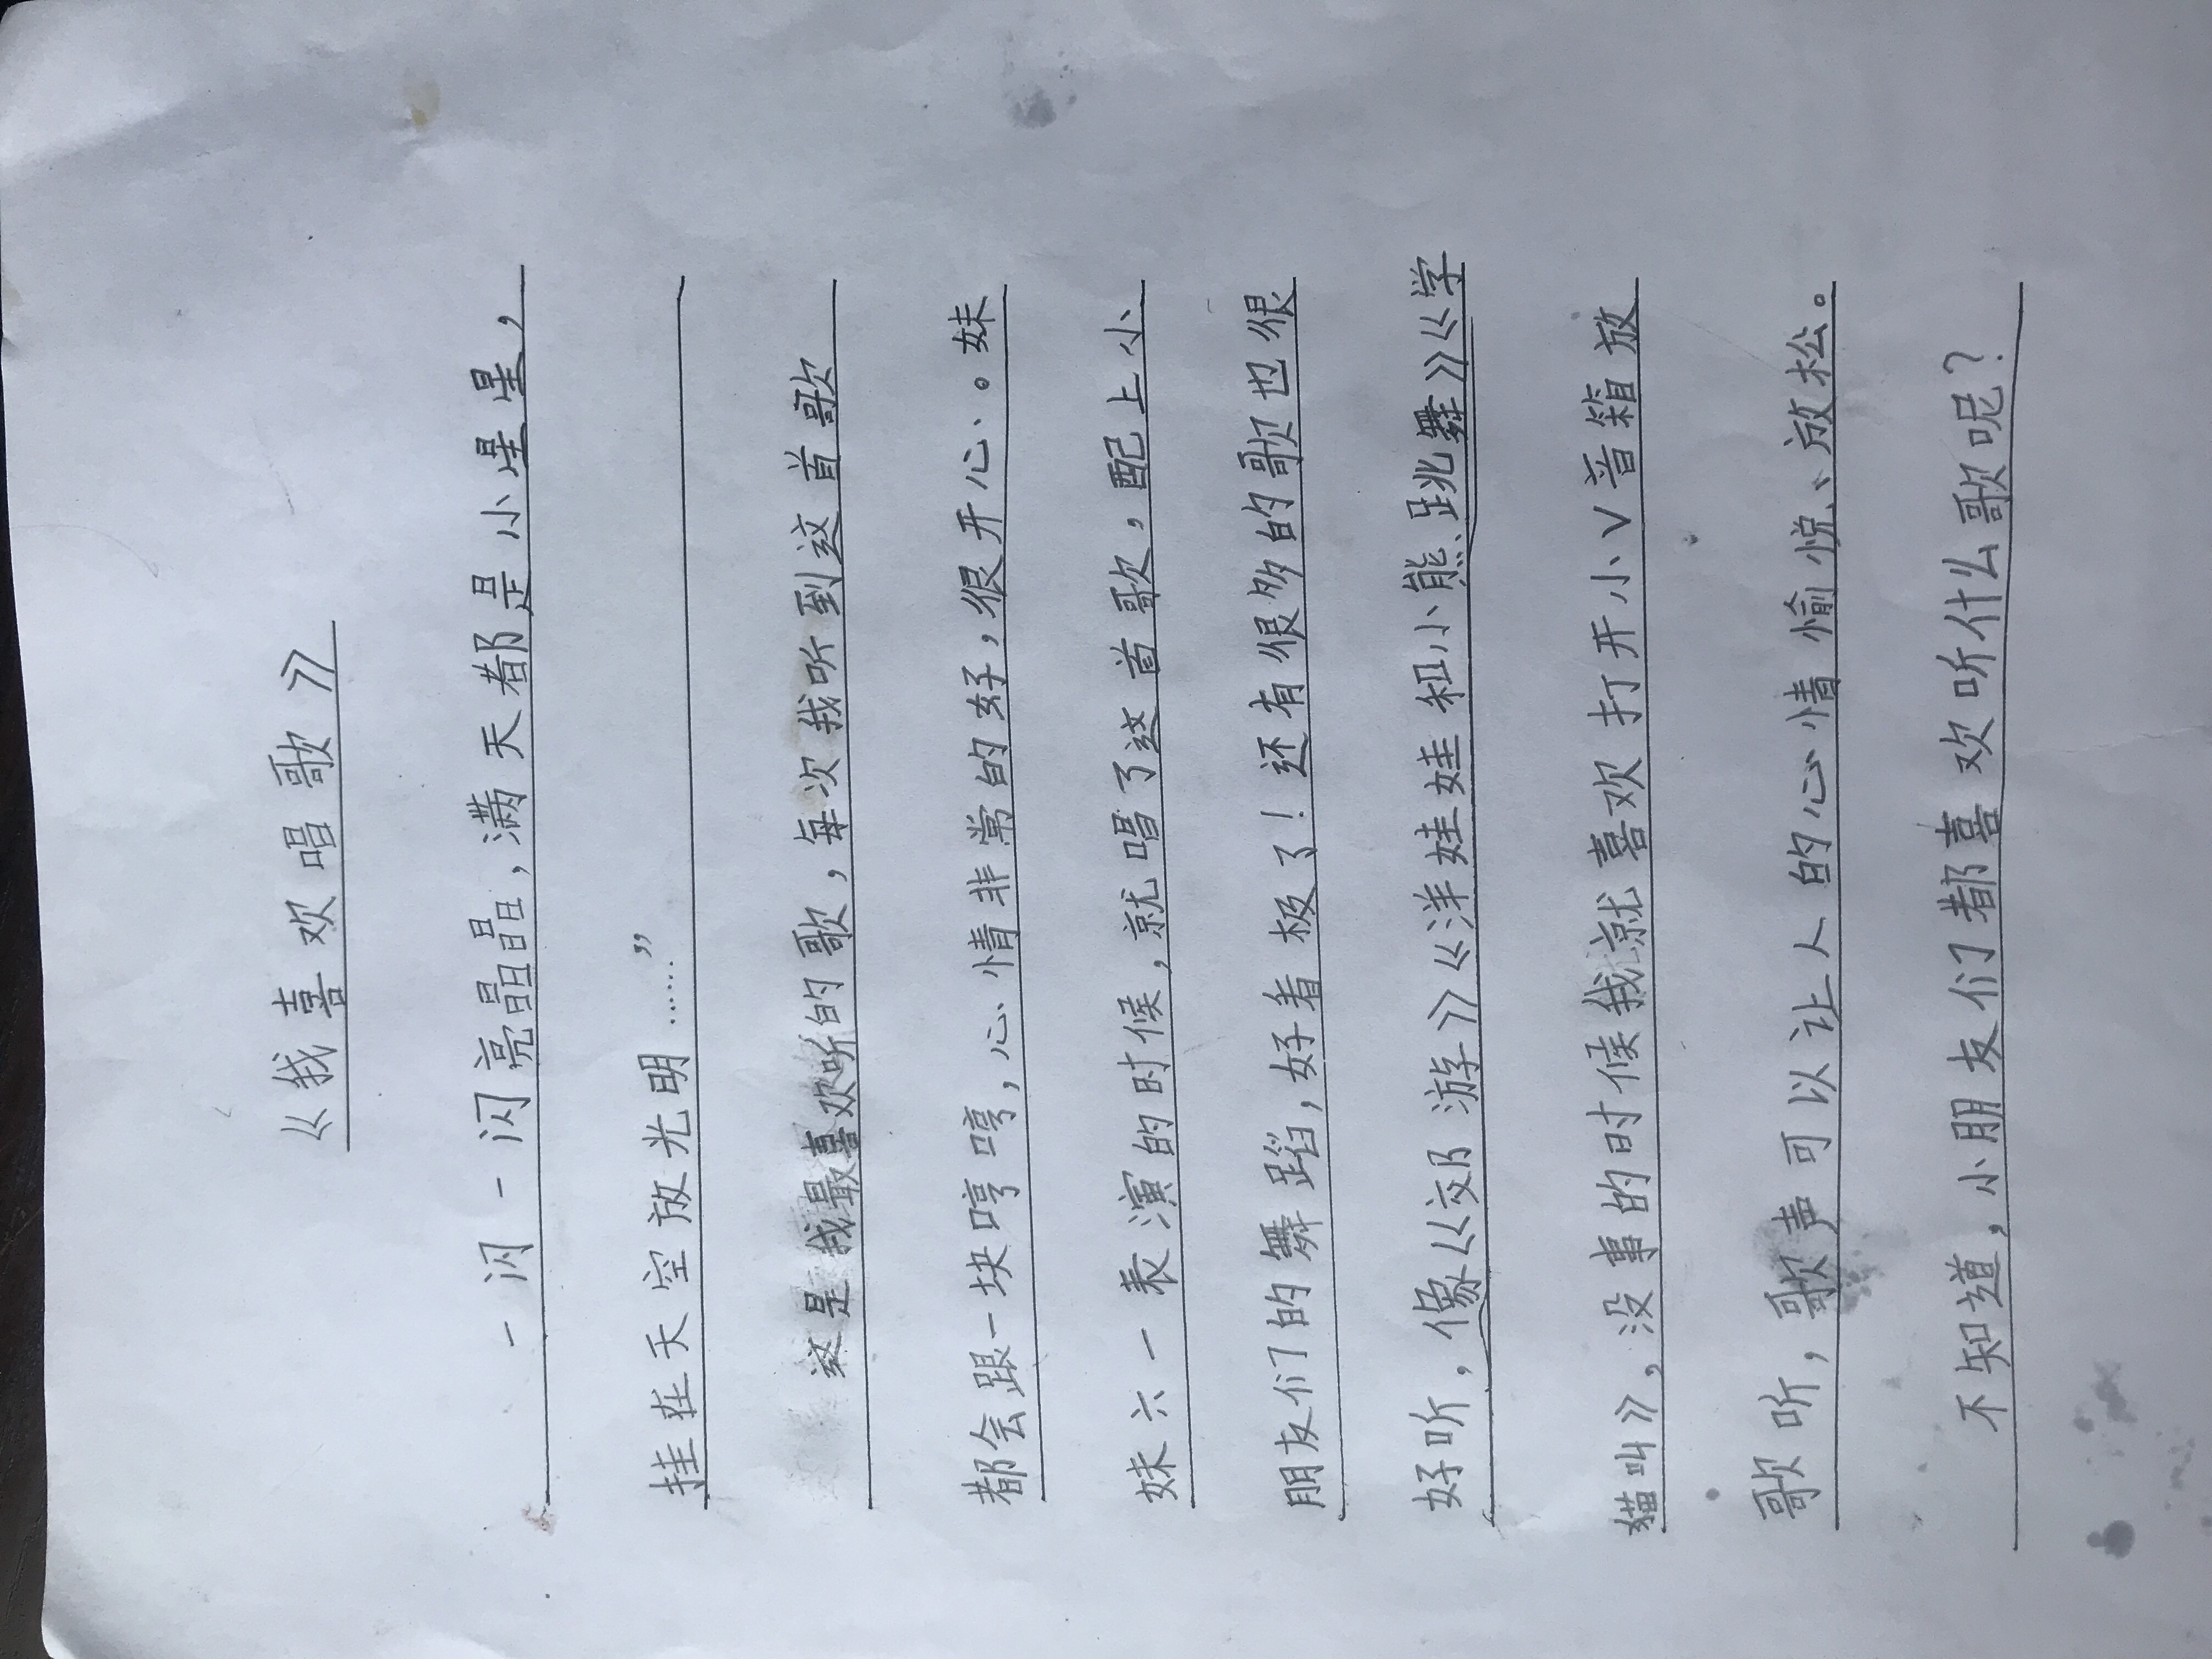 《我喜欢唱歌》
一闪一闪亮晶晶,满天都是小星星,
挂在天空放光明……”
这是我最喜欢听的歌,每次我听到这首歌
都会跟一块哼哼,心情非常的好,很开心。妹
妹六一表演的时候,就唱了这首歌,配上小
朋友们的舞蹈,好看极了!还有很多的歌也很
好听,像《郊游》《洋娃娃和小熊跳舞》《学
猫叫》,没事的时候我就喜欢打开小V音箱放
歌听,歌声可以让人的心情愉悦、放松。
不知道,小朋友们都喜欢听什么歌呢?